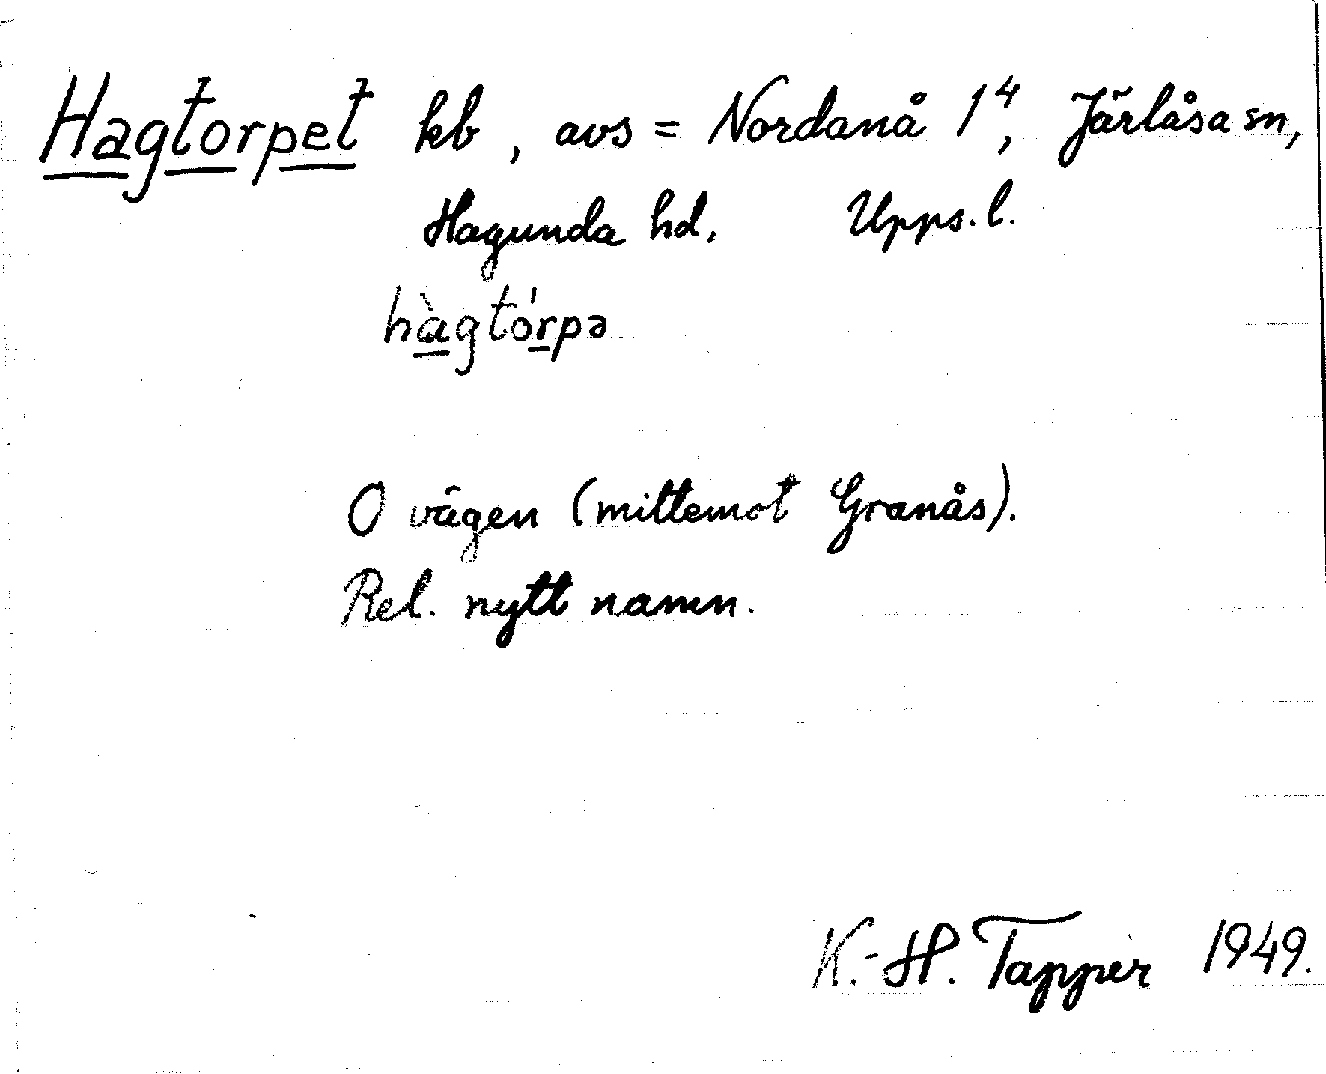 Hagtorpet kb, avs = Nordanå 1⁴, Järlåsa sn,
Hagunda hd. Upps. l.
hàgtórpə
O vägen (mittemot Granås).
Rel. nytt namn.
K.-H. Tapper 1949.